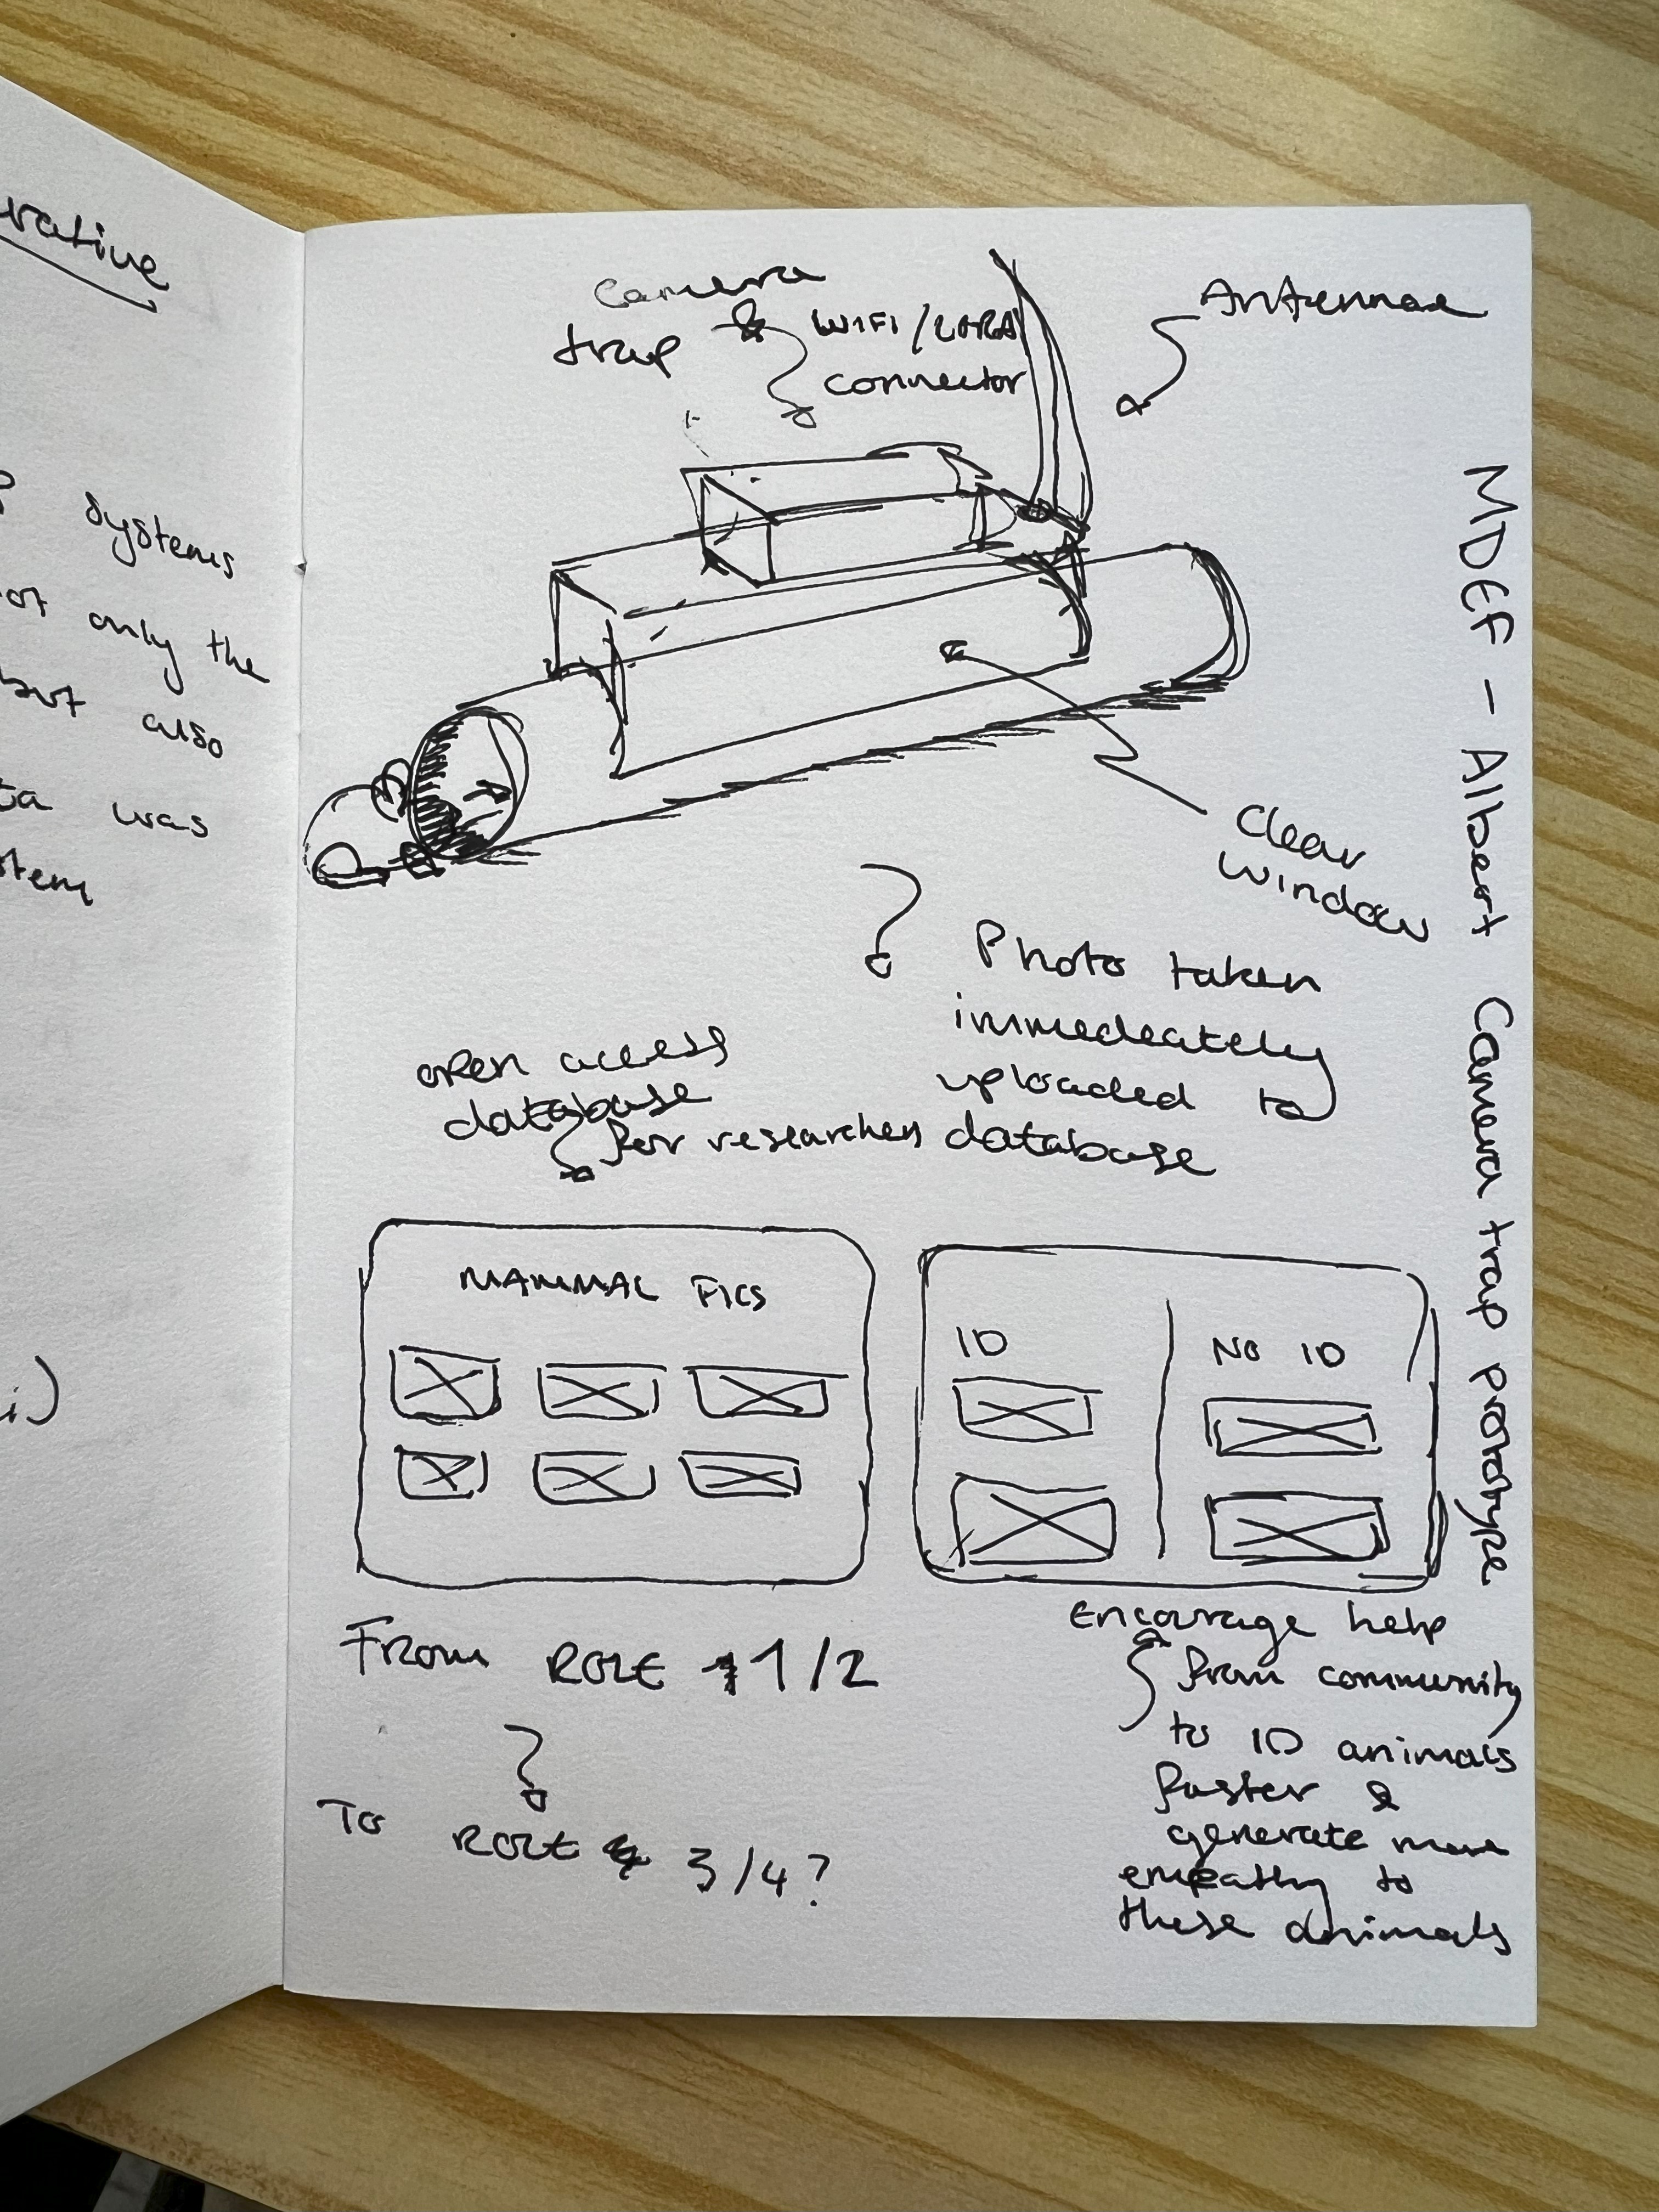 rative
systems
ot only the
but also
ta was
stem
i)
Camera
trap & WIFI/LORA
connector
Antennae
clear
window
Photo taken
immedeately
uploaded to
database
open access
database
for researchers
MAMMAL PICS
ID
NO ID
From ROLE 1/2
To ROLE 3/4?
Encourage help
from community
to ID animals
faster &
generate more
empathy to
these animals
MDEF - Albert Camera trap prototype